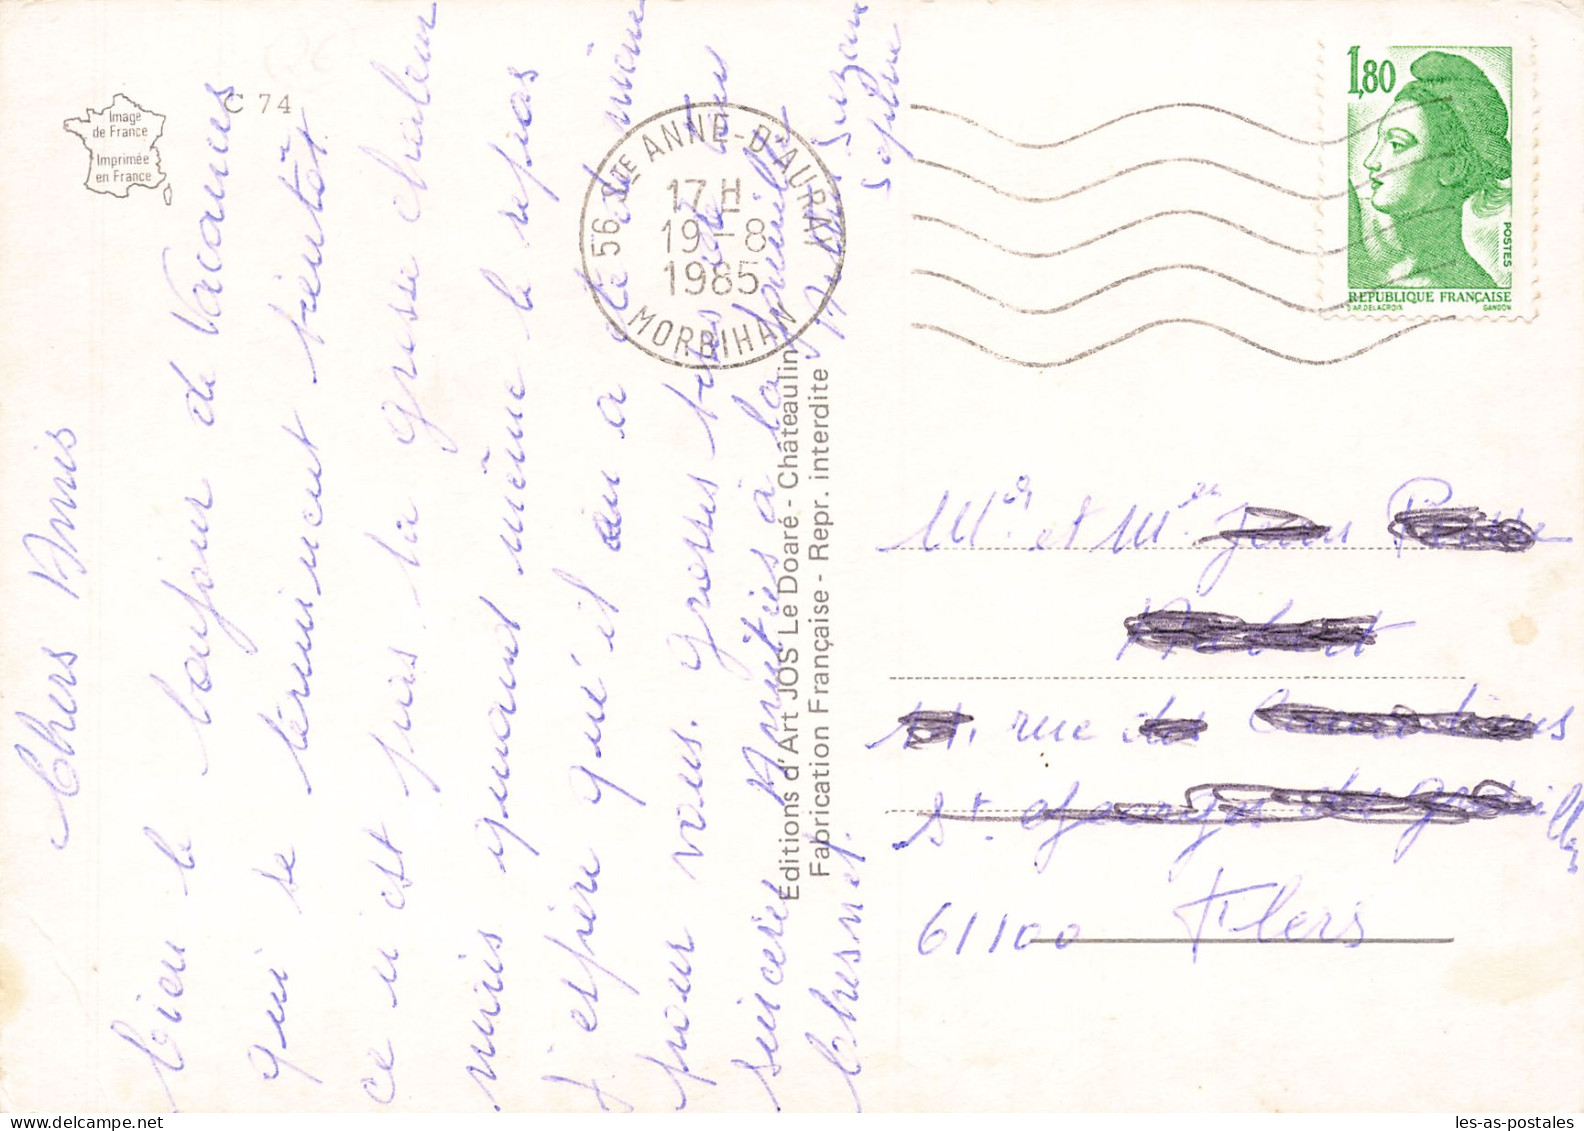 Image
de France
Imprimée
en France
C 74
Chers Amis
bien le bonjour de Vacances
qui se terminent bientôt.
ce n'est pas la grosse chaleur
mais quand même le repas
J'espère qu'il en a été de même
pour vous. Grosses bises de tous
sincères Amitiés à la famille
Chesnel
Suzanne
Sophie
Editions d'Art JOS Le Doaré - Châteaulin
Fabrication Française - Repr. interdite
56 STE ANNE-D'AURAY
17 H
19-8
1985
MORBIHAN
1,80
POSTES
REPUBLIQUE FRANÇAISE
D'AP. DELACROIX GANDON
Mr et Mme Jean
rue des
St Georges des
61100 Flers
les-as-postales.com